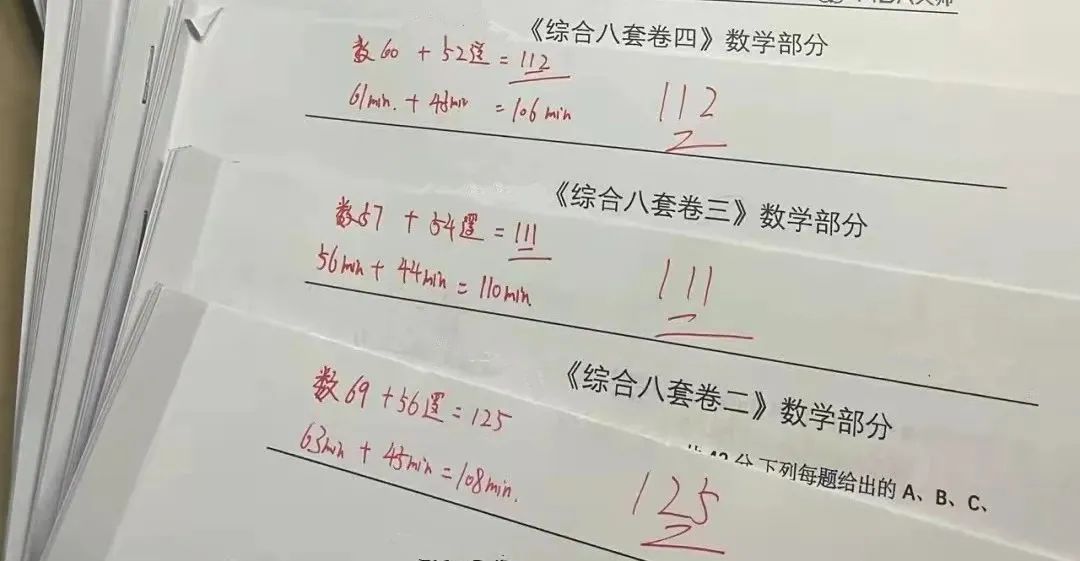 《综合八套卷四》数学部分
数60 + 52逻 = 112
61min. + 45min = 106 min
112
《综合八套卷三》数学部分
数57 + 54逻 = 111
56min + 44min = 110min.
111
《综合八套卷二》数学部分
数69 + 56逻 = 125
63min + 45min = 108min.
分 下列每题给出的 A、B、C、
125